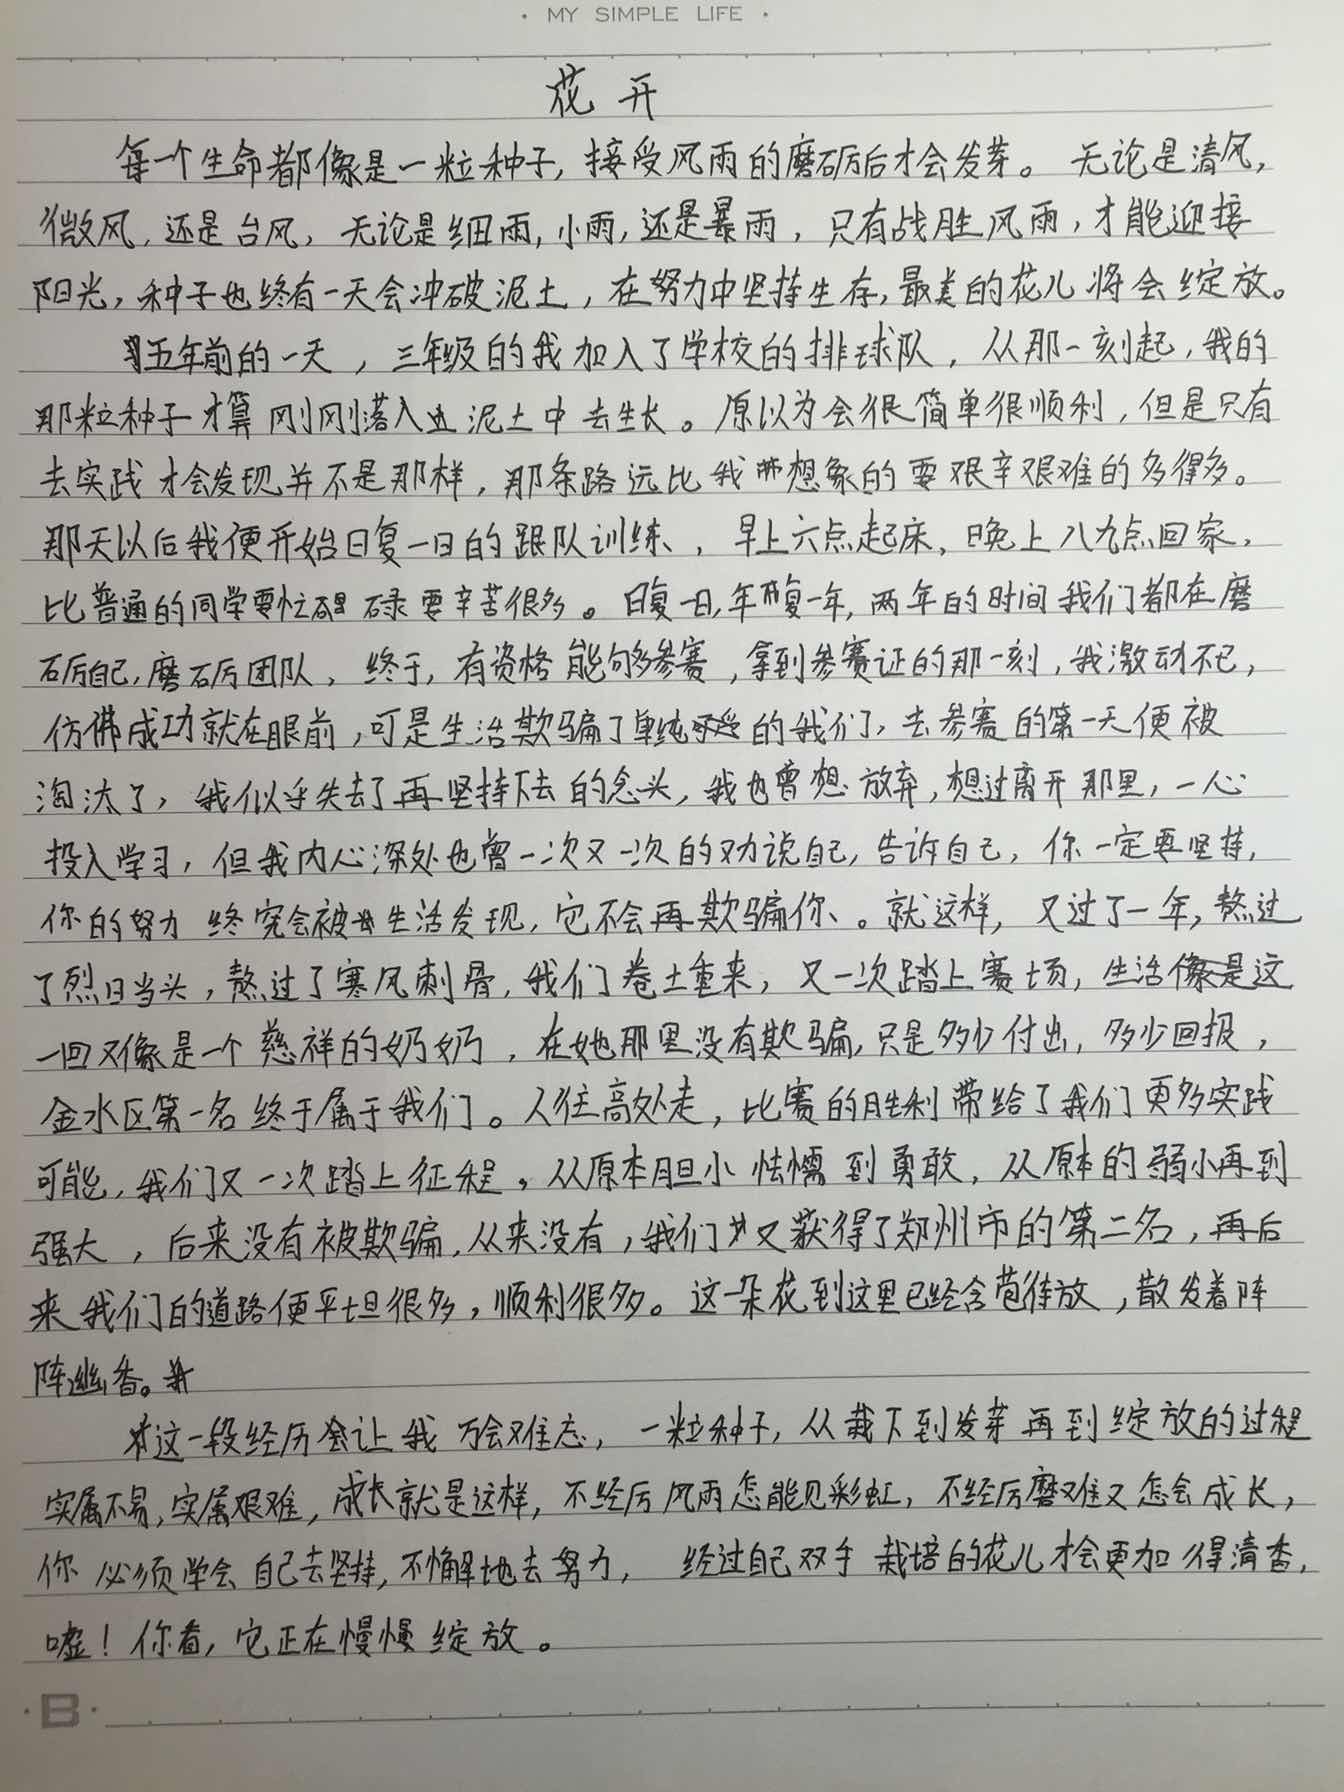 · MY SIMPLE LIFE ·
花开
每一个生命都像是一粒种子，接受风雨的磨砺后才会发芽。无论是清风，
微风，还是台风，无论是细雨，小雨，还是暴雨，只有战胜风雨，才能迎接
阳光，种子也终有一天会冲破泥土，在努力中坚持生存，最美的花儿将会绽放。
五年前的一天，三年级的我加入了学校的排球队，从那一刻起，我的
那粒种子才算刚刚落入泥土中去生长。原以为会很简单很顺利，但是只有
去实践才会发现并不是那样，那条路远比我想象的要艰辛艰难的多得多。
那天以后我便开始日复一日的跟队训练，早上六点起床，晚上八九点回家，
比普通的同学要忙碌要辛苦很多。日复一日，年复一年，两年的时间我们都在磨
砺自己，磨砺团队，终于，有资格能够参赛，拿到参赛证的那一刻，我激动不已，
仿佛成功就在眼前，可是生活欺骗了单纯的我们，去参赛的第一天便被
淘汰了，我似乎失去了再坚持下去的念头，我也曾想放弃，想过离开那里，一心
投入学习，但我内心深处也曾一次又一次的劝说自己，告诉自己，你一定要坚持，
你的努力终究会被生活发现，它不会再欺骗你、。就这样，又过了一年，熬过
了烈日当头，熬过了寒风刺骨，我们卷土重来，又一次踏上赛场，生活像是这
一回又像是一个慈祥的奶奶，在她那里没有欺骗，只是多少付出，多少回报，
金水区第一名终于属于我们。人往高处走，比赛的胜利带给了我们更多实践
可能，我们又一次踏上征程，从原本胆小怯懦到勇敢，从原本的弱小再到
强大，后来没有被欺骗，从来没有，我们又获得了郑州市的第二名，再后
来我们的道路便平坦很多，顺利很多。这一朵花到这里已经含苞待放，散发着阵
阵幽香。
这一段经历会让我万会难忘，一粒种子，从栽下到发芽再到绽放的过程
实属不易，实属艰难，成长就是这样，不经历风雨怎能见彩虹，不经历磨难又怎会成长，
你必须学会自己去坚持，不懈地去努力，经过自己双手栽培的花儿才会更加得清香，
嘘！你看，它正在慢慢绽放。
·B·